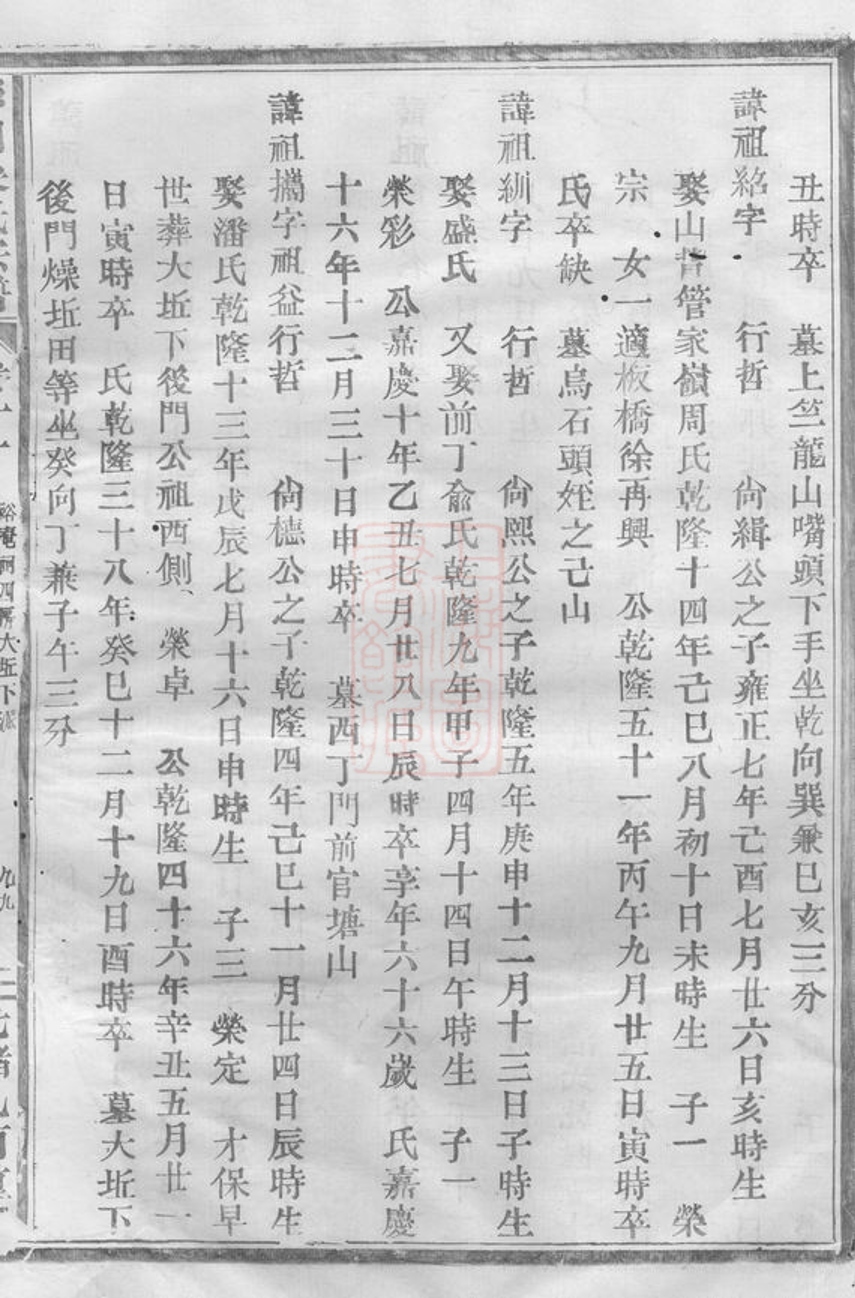 丑時卒　墓上竺龍山嘴頭下手坐乾向巽兼巳亥三分
諱祖絡字　行哲　尙緝公之子雍正七年己酉七月廿六日亥時生
娶山昔管家嶺周氏乾隆十四年己巳八月初十日未時生　子一　榮
宗　女一適板橋徐再興　公乾隆五十一年丙午九月廿五日寅時卒
氏卒缺　墓烏石頭姪之己山
諱祖紃字　行哲　尙熙公之子乾隆五年庚申十二月十三日子時生
娶盛氏　又娶前丁俞氏乾隆九年甲子四月十四日午時生　子一
榮彩　公嘉慶十年乙丑七月廿八日辰時卒享年六十六歲　氏嘉慶
十六年十二月三十日申時卒　墓西丁門前官塘山
諱祖攜字祖益行哲　尙橞公之子乾隆四年己巳十一月廿四日辰時生
娶潘氏乾隆十三年戊辰七月十六日申時生　子三　榮定　才保早
世葬大坵下後門公祖西側　榮卓　公乾隆四十六年辛丑五月廿一
日寅時卒　氏乾隆三十八年癸巳十二月十九日酉時卒　墓大坵下
後門燥坵田等坐癸向丁兼子午三分
裕菴祠四房大坵下派
九九